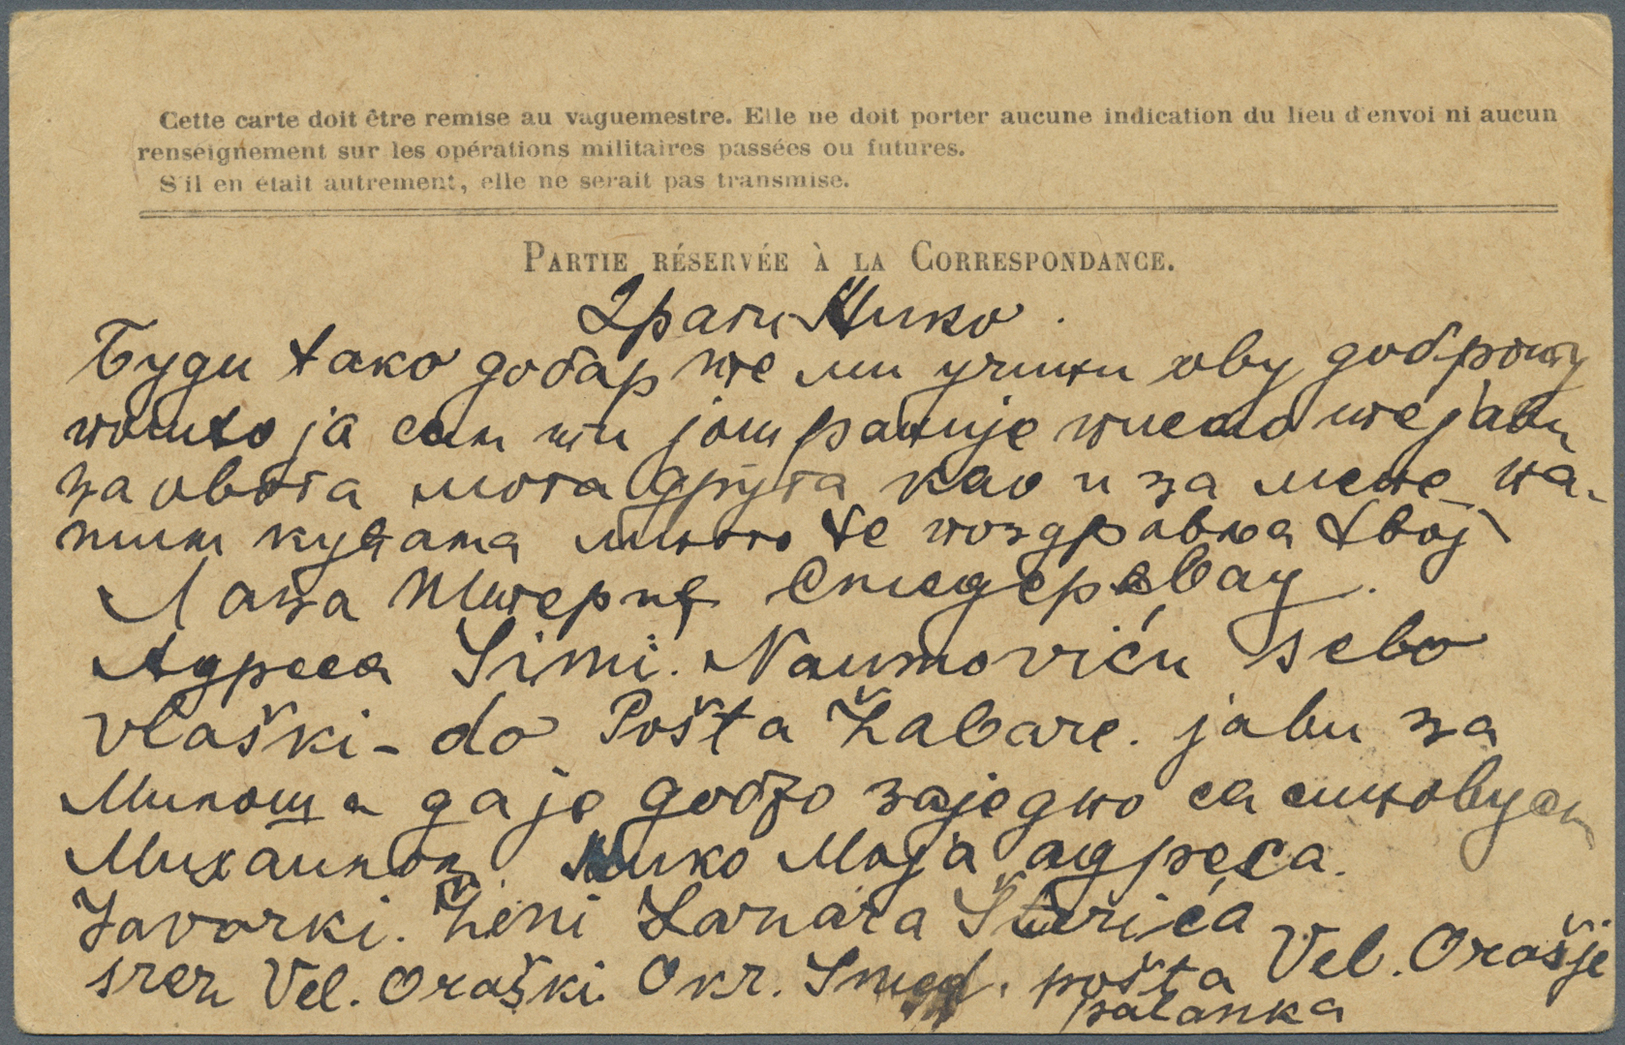 Cette carte doit être remise au vaguemestre. Elle ne doit porter aucune indication du lieu d'envoi ni aucun
renseignement sur les opérations militaires passées ou futures.
S'il en était autrement, elle ne serait pas transmise.
PARTIE RÉSERVÉE À LA CORRESPONDANCE.
Драги Мико.
Буди тако добар те ми учини ову доброту
пошто ја сам ти још раније писао те јави
за овога мога друга као и за мене на
шим кућама много те поздравља твој
Лаза Штерић Смедеревац.
Адреса Simi. Naumoviću selo
vlaški-do Pošta Žabare. јави за
Милоша да је добро заједно са синовцем
Михаилом Мико Моја адреса.
Javorki. Ženi Lazara Šterića
srez Vel. Oraški. Okr. Smed. pošta Vel. Orašje
palanka